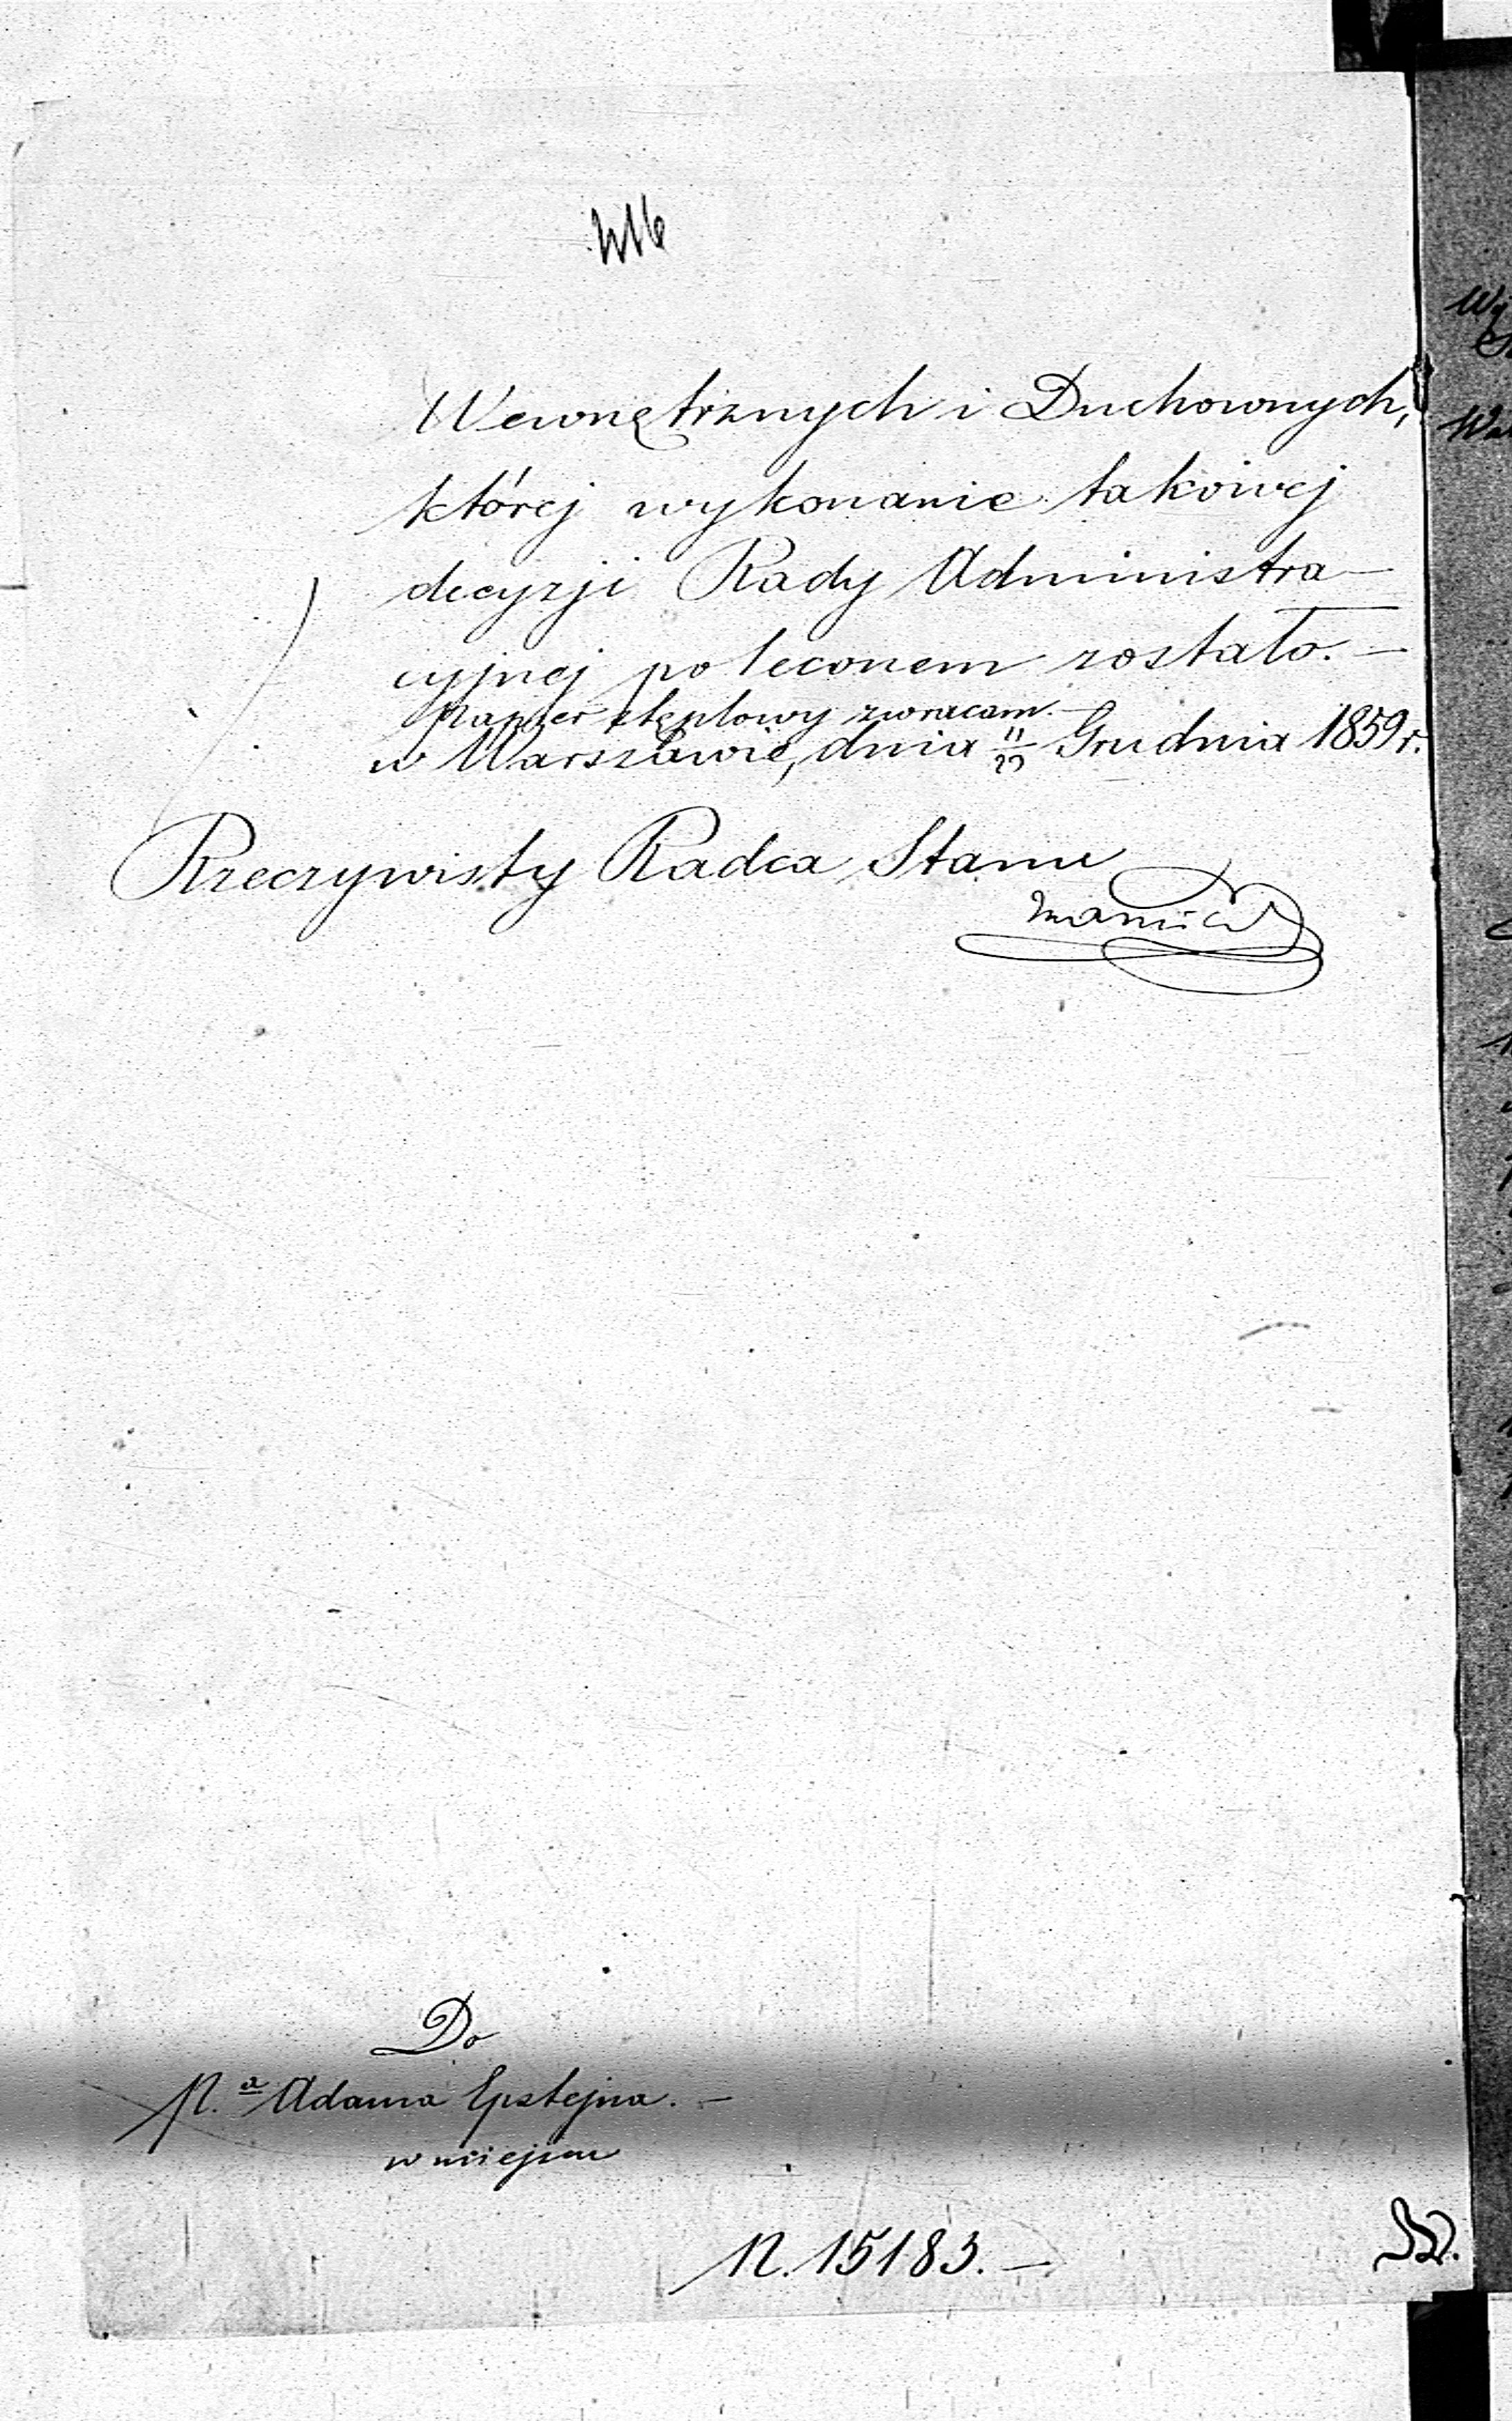 416
Wewnętrznych i Duchownych,
której wykonanie takowej
decyzji Rady Administra-
cyjnej poleconem zostało. -
Papier stęplowy zwracam. -
w Warszawie, dnia 11/23 Grudnia 1859 r.
Rzeczywisty Radca Stanu
Do
P.ª Adama Epstejna. -
w miejscu
N. 15183. -